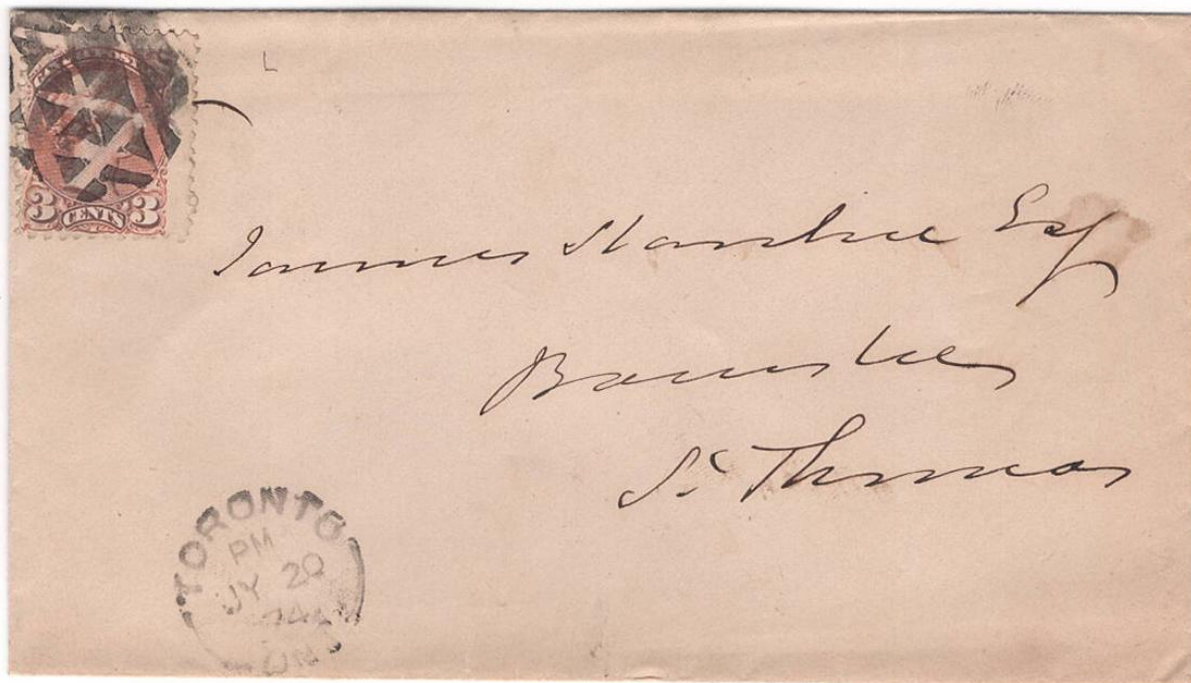 3 CENTS 3
James Stanton Esq
Barrister
St. Thomas
TORONTO
PM
JY 20
74
ONT